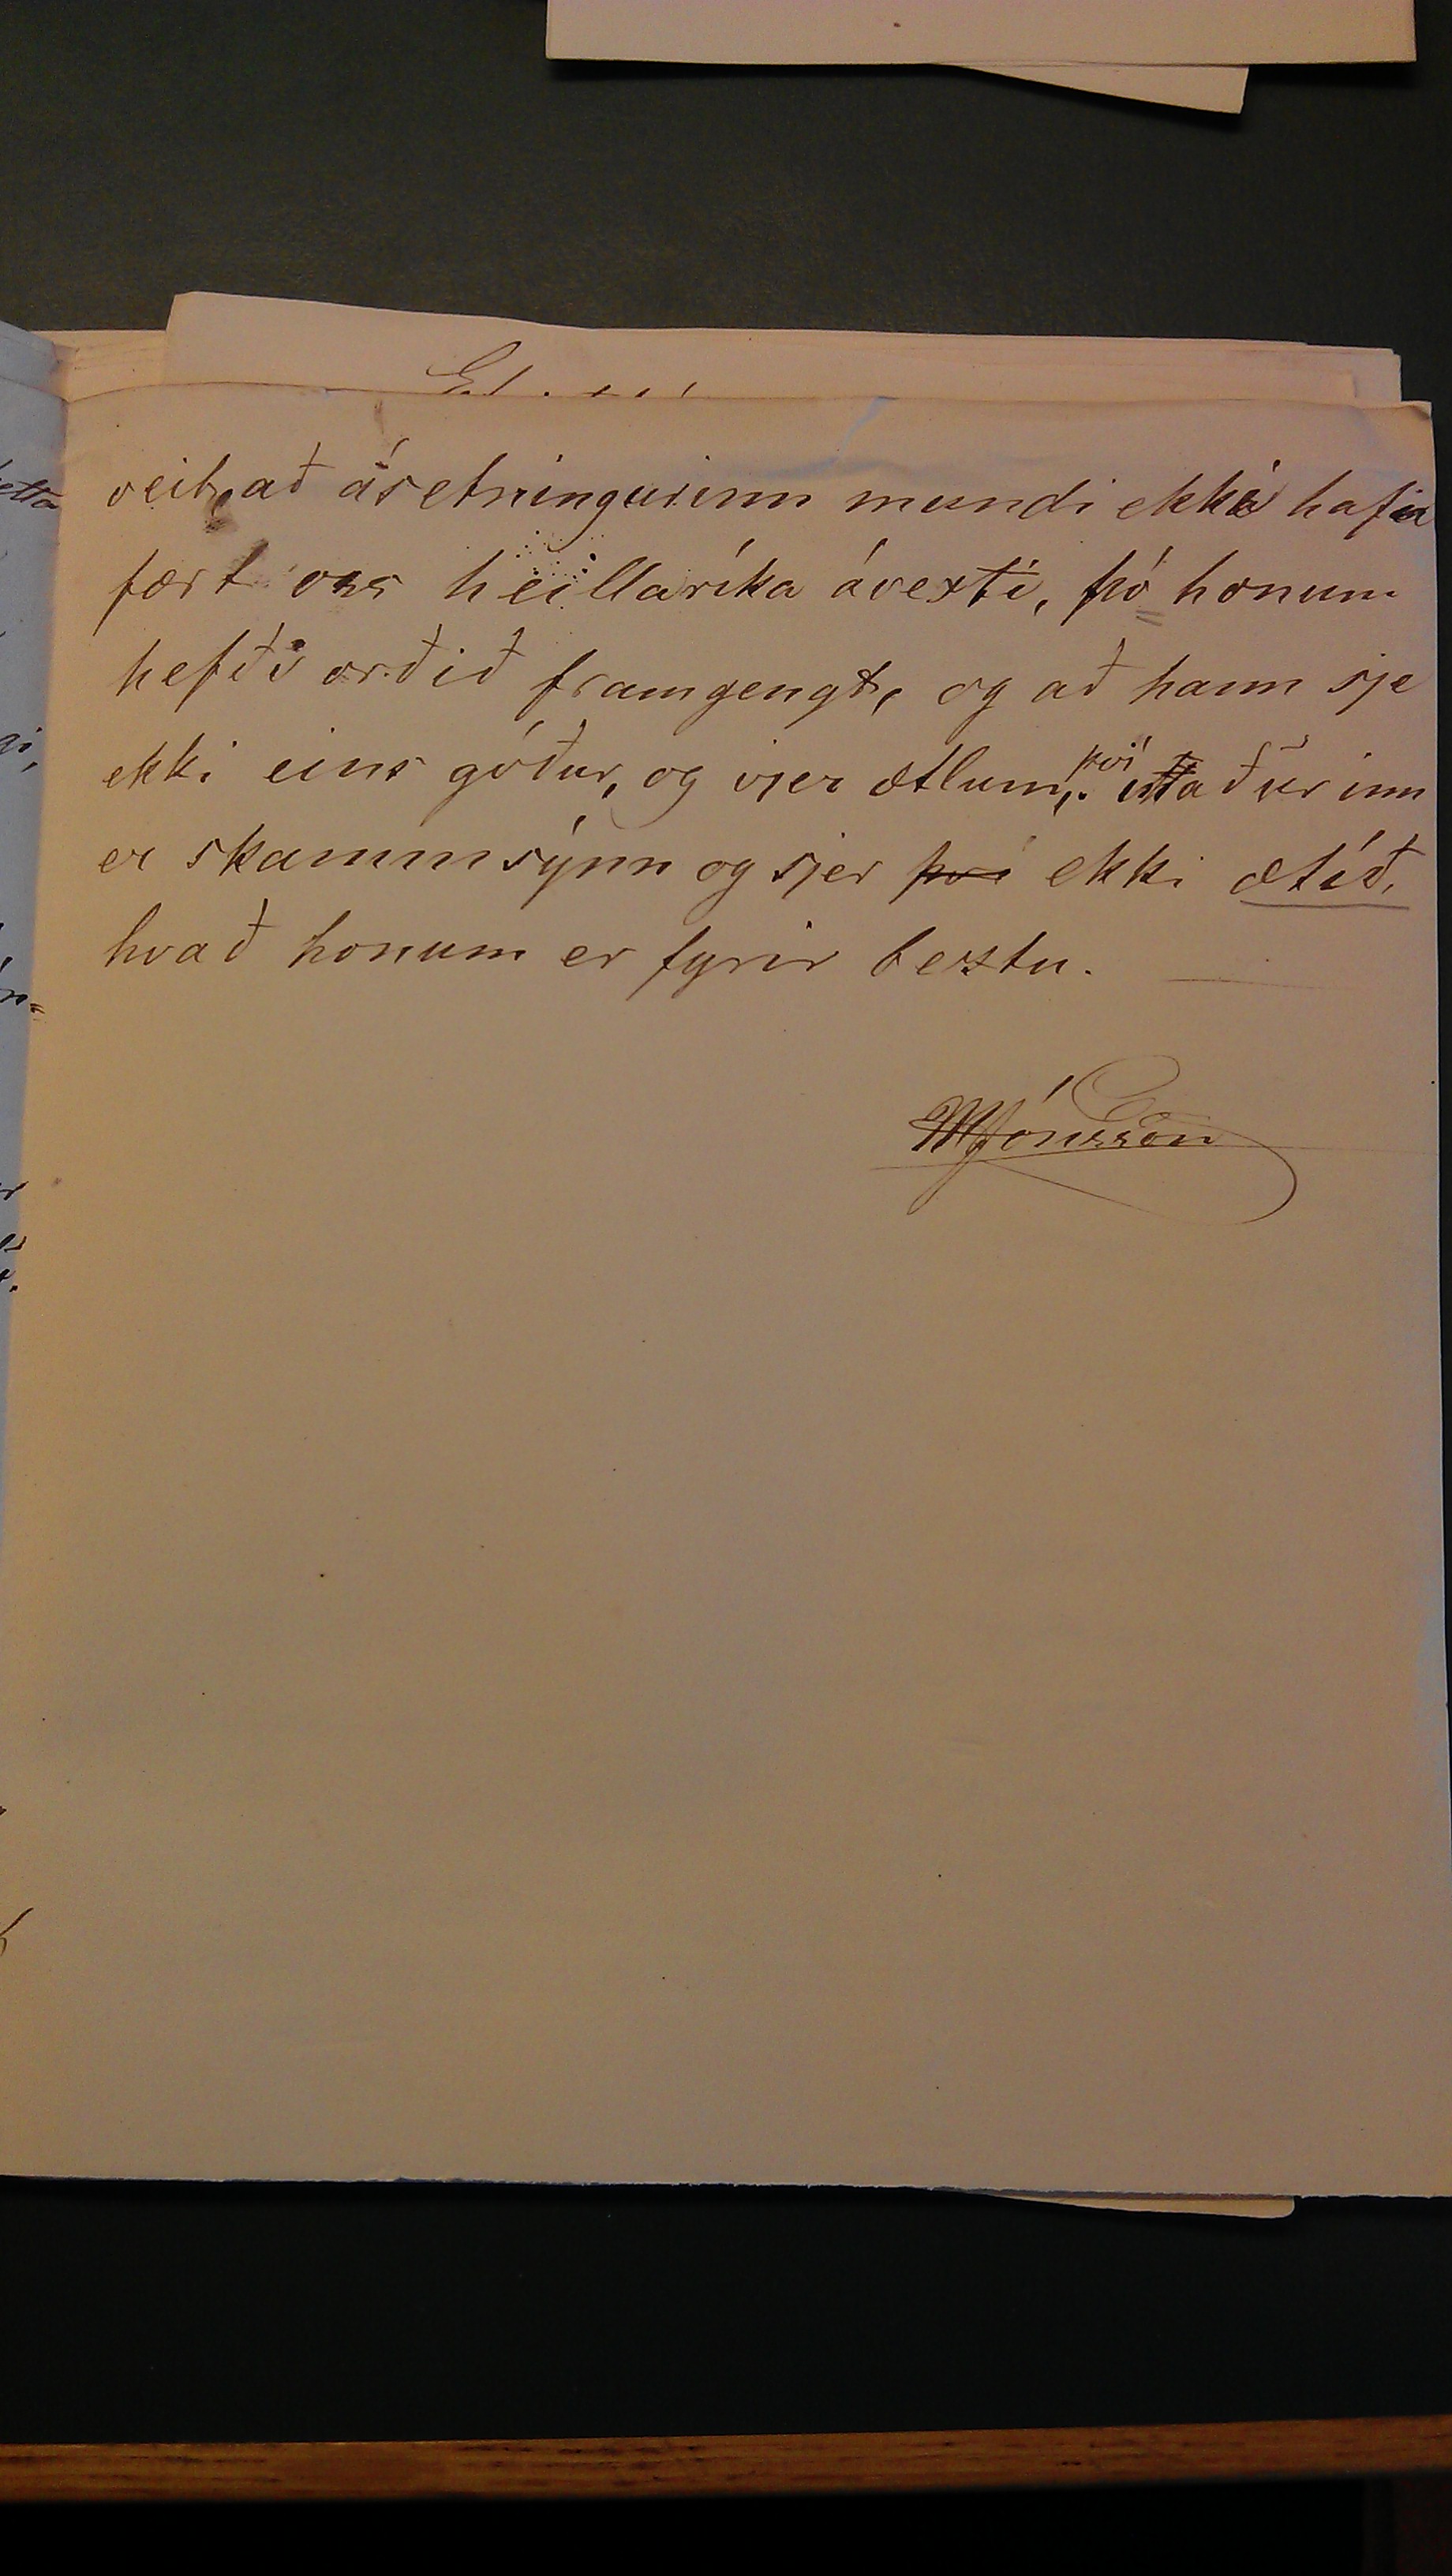 veit, að ásetningurinn mundi ekki hafa
fært oss heillaríka ávexti, þó honum
hefði orðið framgengt, og að hann sje
ekki eins góður, og vjer ætlum, því maðurinn
er skammsýnn og sjer því ekki ætíð,
hvað honum er fyrir beztu.
MJónsson